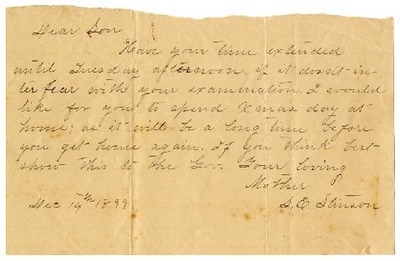 Dear Son
Have your time extended
until Tuesday afternoon, if it dosnt in-
ter fear with your examination. I would
like for you to spend Xmas day at
home; as it will be a long time before
you get home again. If you think best
show this to the Gov. Your loving
Mother
Dec 14th 1899 S. E. Stinson